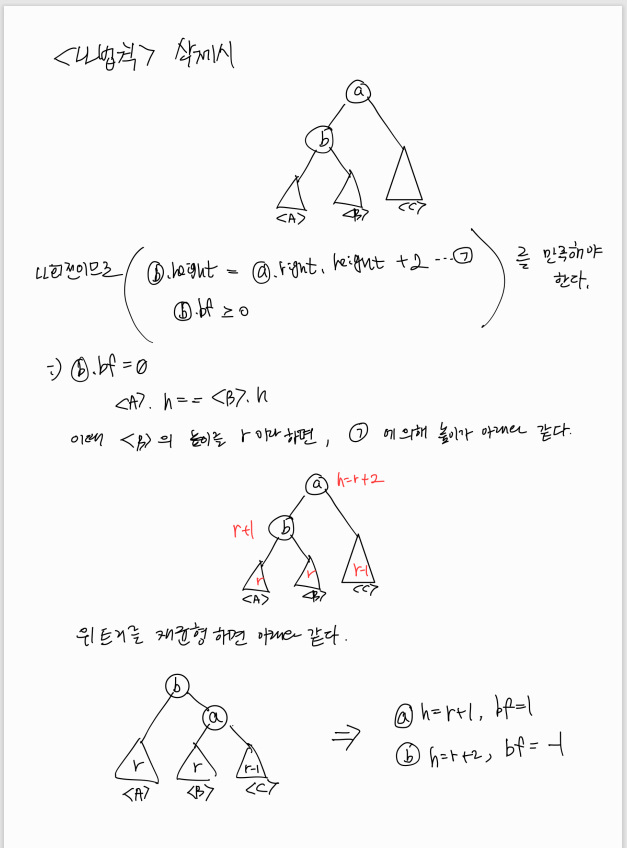 <LL법칙> 삭제시
a
b
<A> <B> <C>
LL회전이므로 ( b.height = a.right.height + 2 ... ㉠ ) 를 만족해야
b.bf ≥ 0
한다.
i) b.bf = 0
<A>.h == <B>.h
이때 <B>의 높이를 r이라하면, ㉠에 의해 높이가 아래와 같다.
a h=r+2
r+1 b
r r r-1
<A> <B> <C>
위 트리를 재균형하면 아래와 같다.
b
a
r r r-1
<A> <B> <C>
⇒ a h=r+1, bf=1
b h=r+2, bf=-1